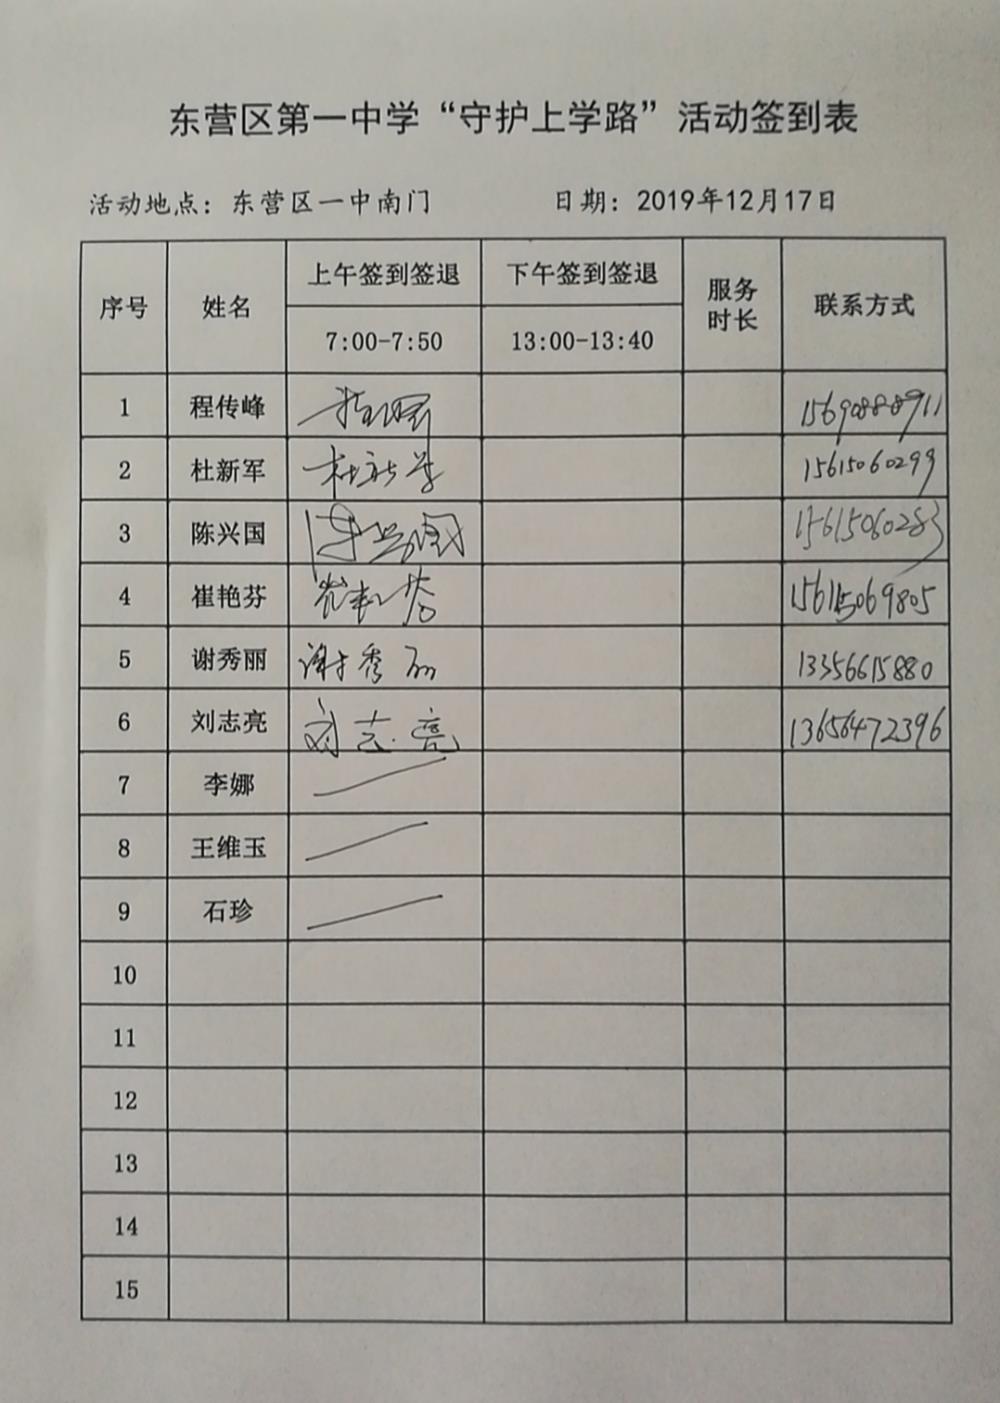 东营区第一中学“守护上学路”活动签到表
活动地点：东营区一中南门 日期：2019年12月17日
序号 姓名 上午签到签退 下午签到签退 服务时长 联系方式
7:00-7:50 13:00-13:40
1 程传峰 程传峰 15690888911
2 杜新军 杜新军 15615060299
3 陈兴国 陈兴国 15615060283
4 崔艳芬 崔艳芬 15615069805
5 谢秀丽 谢秀丽 13356615880
6 刘志亮 刘志亮 13656472396
7 李娜
8 王维玉
9 石珍
10
11
12
13
14
15